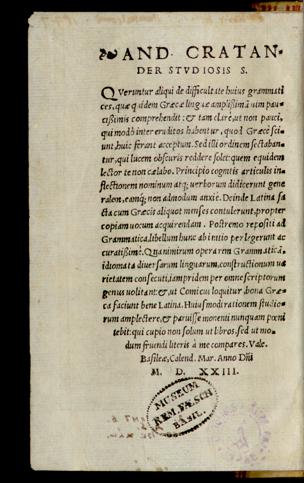 AND. CRATAN-
DER STVDIOSIS S.
QVeruntur aliqui de difficultate huius grammati
ces, quæ quidem Græcæ linguæ amplissimā uim pau-
cissimis comprehendit: & tam clarè, ut non pauci,
qui modò inter eruditos habentur, quod Græcè sci-
unt, huic ferant acceptum. Sed illi ordinem sectaban-
tur, qui lucem obscuris reddere solet: quem equidem
lector te non cælabo. Principio cognitis articulis in-
flectionem nominum atq; uerborum didicerunt gene
ralem, eamq; non admodum anxiè. Deinde Latina fa
cta cum Græcis aliquot menses contulerunt, propter
copiam uocum acquirendam. Postremo repositi ad
Grammatica, libellum hunc ab initio perlegerunt ac
curatissimè. Quānimirum opera rem Grammaticā,
idiomata diuersarum linguarum, constructionum ua
rietatem consecuti, iampridem per omne scriptorum
genus uolitant: & , ut Comicus loquitur, bona Græ-
ca faciunt bene Latina. Huiusmodi rationem studio-
rum amplectere, et paruisse monenti nunquam pœni
tebit: qui cupio non solum ut libros, sed ut mo-
dum fruendi literis à me compares. Vale.
Basileæ, Calend. Mar. Anno Dñi
M. D. XXIII.
MUSEUM
REM. FÆSCH
BASIL.